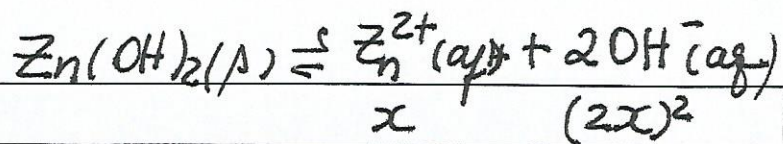 Zn(OH)₂(s) ⇌ Zn²⁺(aq) + 2OH⁻(aq)
x (2x)²